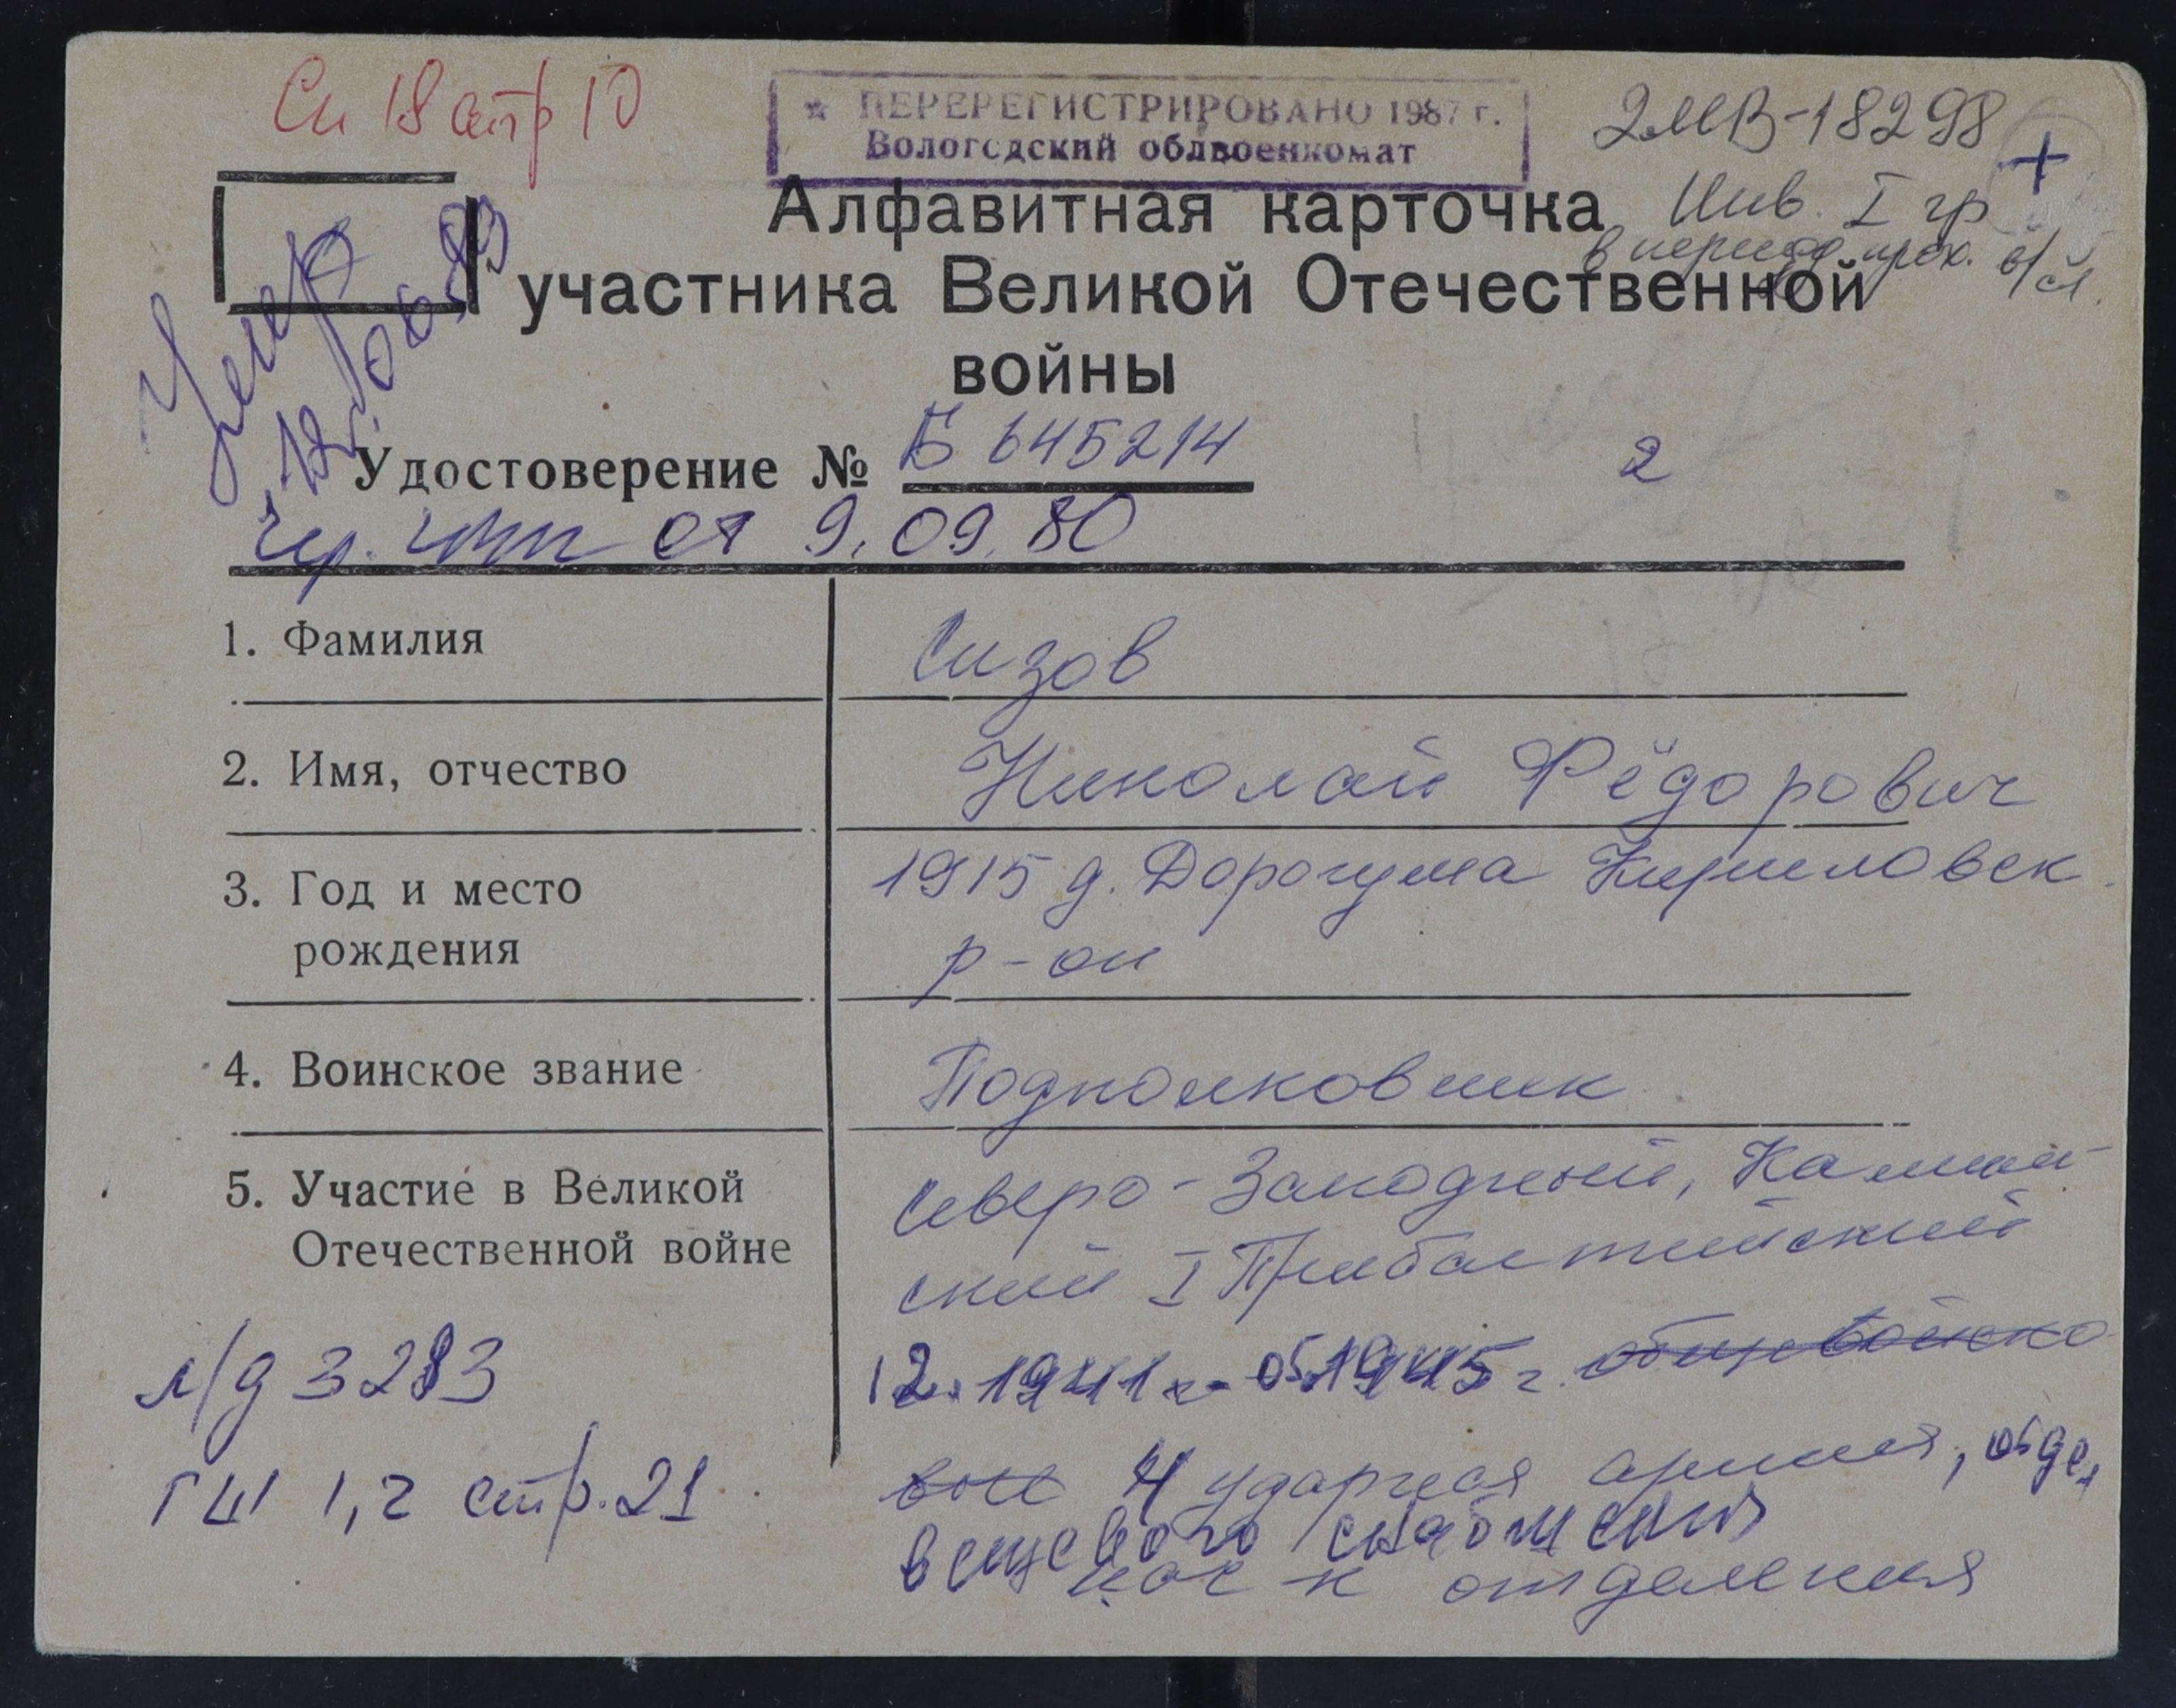 Сп 18 стр 10
ПЕРЕРЕГИСТРИРОВАНО 1987 г.
Вологодский облвоенкомат
2МВ-18298
+
Инв. I гр
в период прох. в/сл.
Алфавитная карточка
участника Великой Отечественной
войны
Умер
12.06.89
Удостоверение № Б 645214
2
от 9.09.80
1. Фамилия Сизов
2. Имя, отчество Николай Фёдорович
3. Год и место 1915 д. Дорогуша Кирилловск
рождения р-он
4. Воинское звание Подполковник
5. Участие в Великой Северо-Западный, Калинин
Отечественной войне ский I Прибалтийский
л/д 3283 12.1941 г - 05.1945 г. общевойско
ГШ 1,2 стр. 21 вые 4 ударная армия, отдел
вещевого снабжения
нач-к отделения